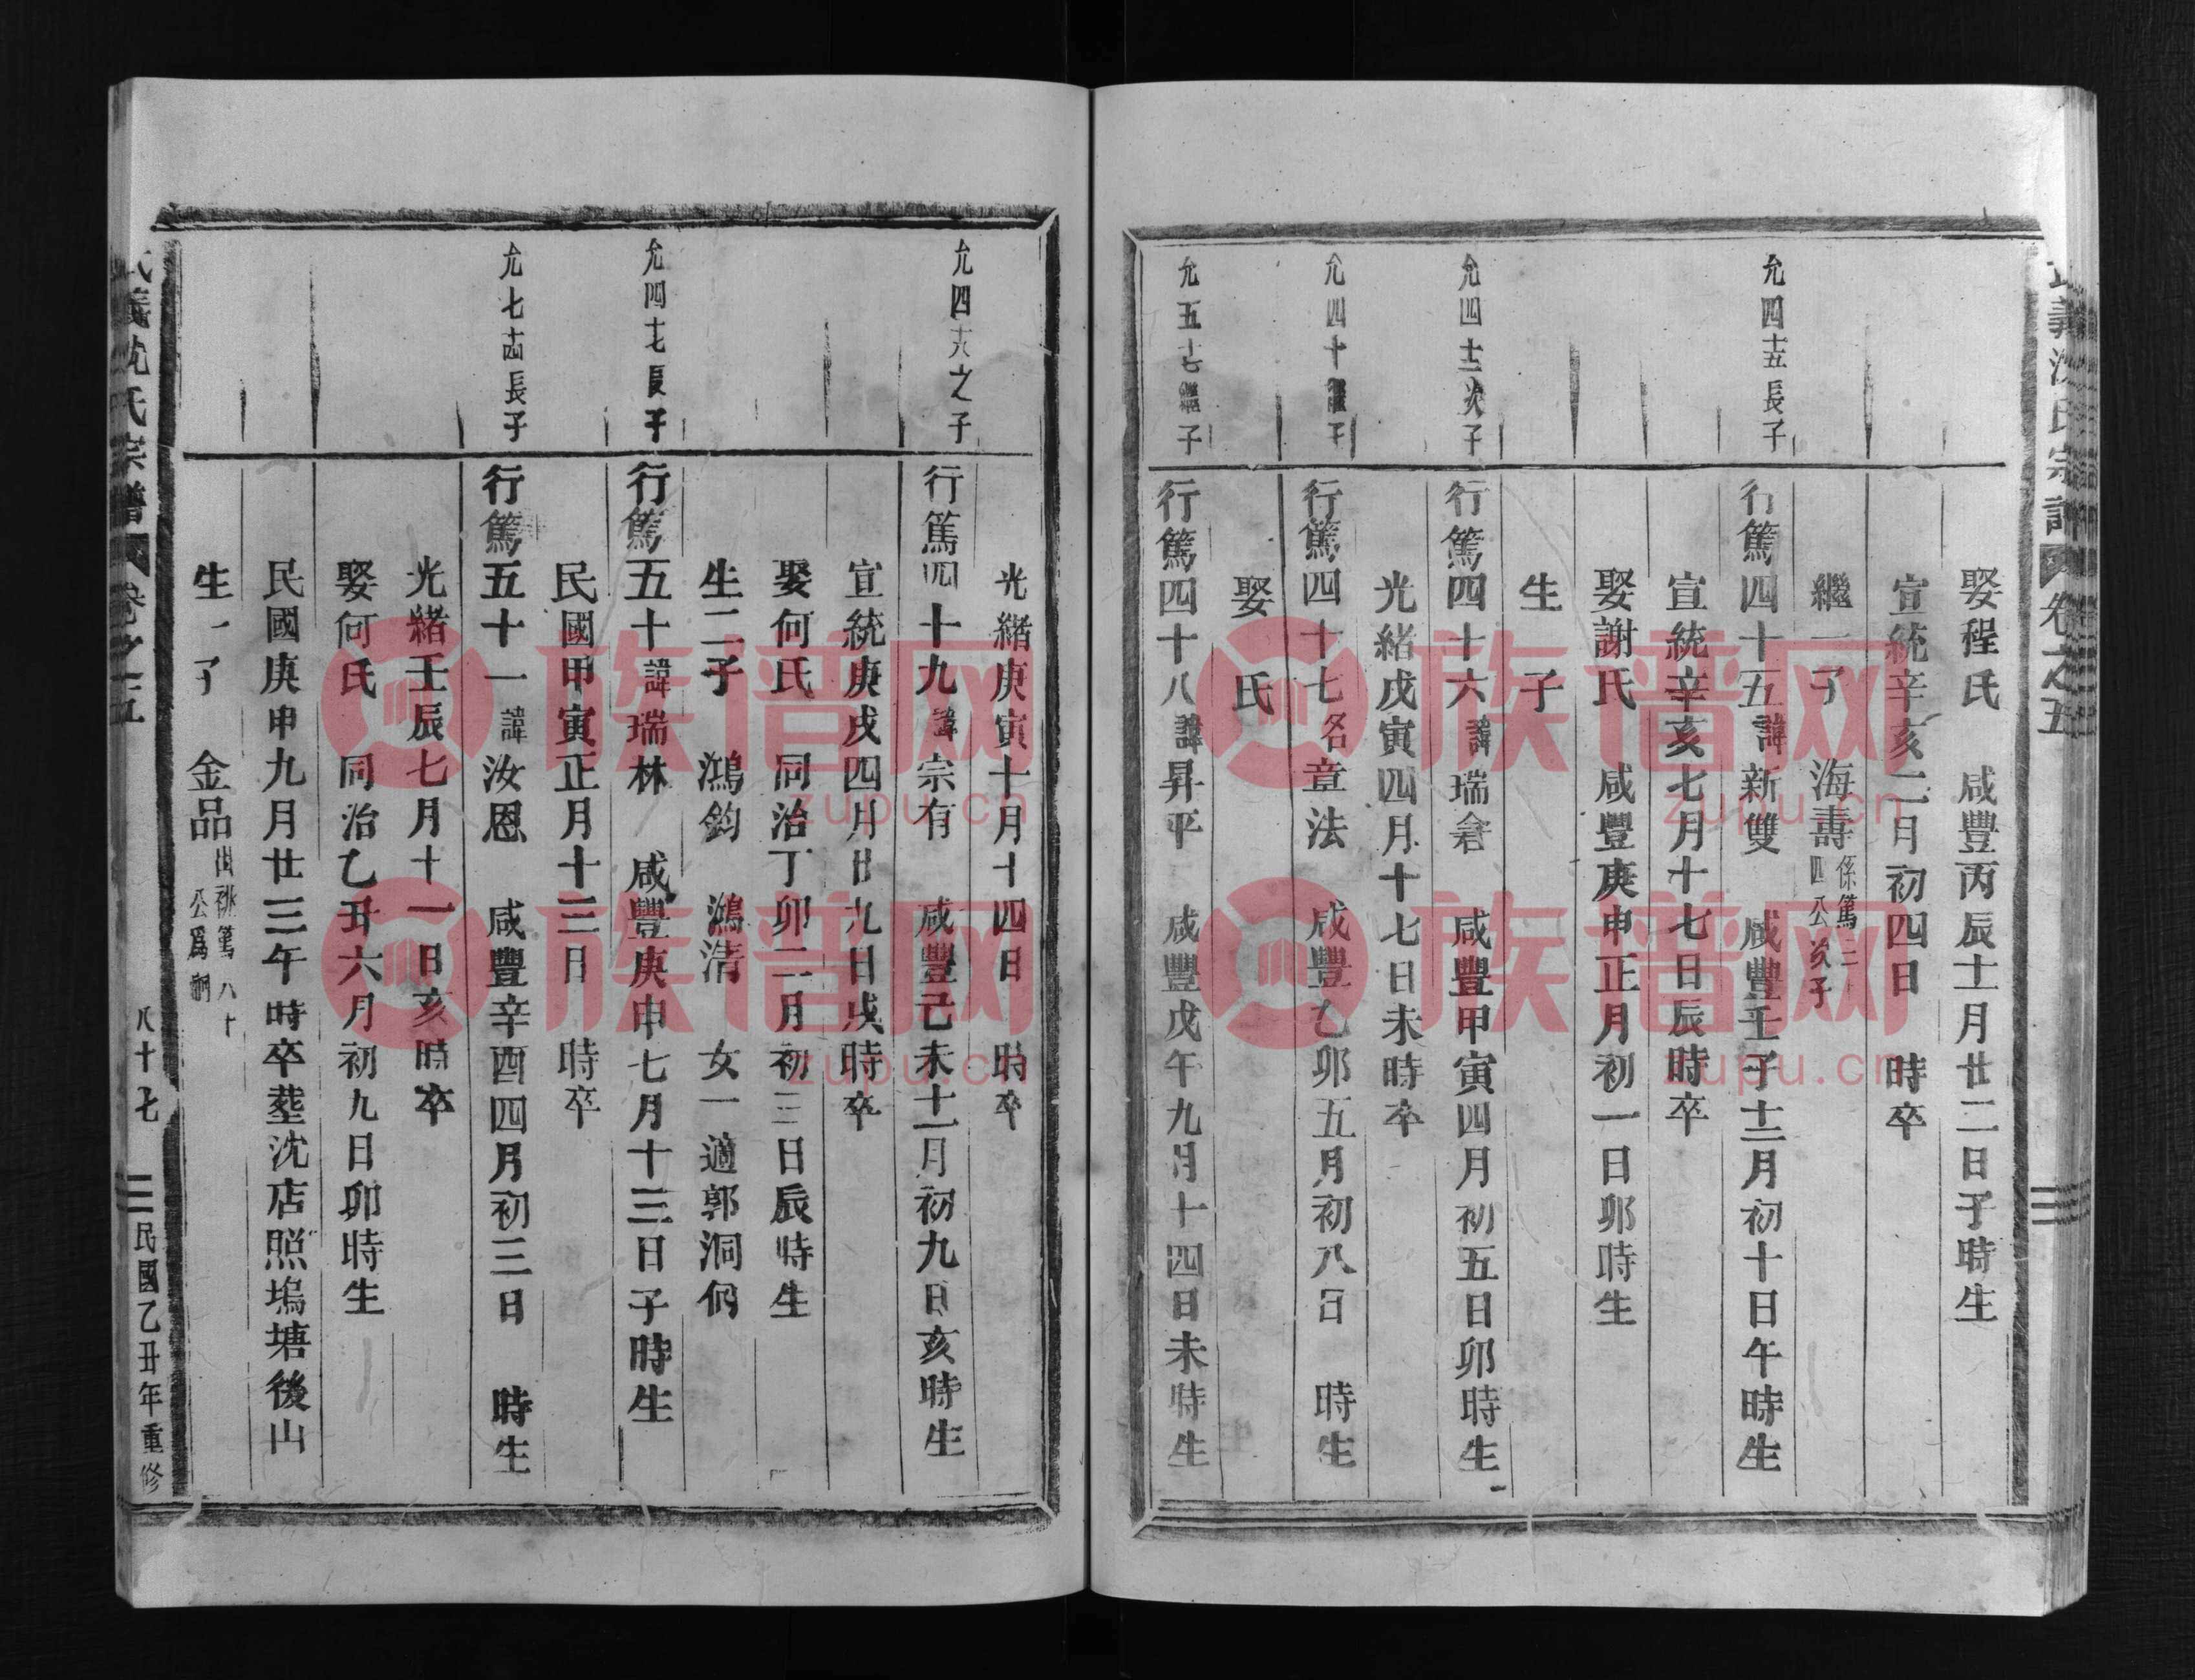 義沈氏宗譜 卷之五
娶程氏 咸豐丙辰十一月廿二日子時生
宣統辛亥二月初四日 時卒
繼一子 海壽 係篤三十四公次子
允四十五長子 行篤四十五諱新雙 咸豐壬子十二月初十日午時生
宣統辛亥七月十七日辰時卒
娶謝氏 咸豐庚申正月初一日卯時生
生 子
允四十三次子 行篤四十六諱瑞倉 咸豐甲寅四月初五日卯時生
光緒戊寅四月十七日未時卒
允四十繼子 行篤四十七名章法 咸豐乙卯五月初八日 時生
娶 氏
允五十七繼子 行篤四十八諱昇平 咸豐戊午九月十四日未時生
光緒庚寅十月十四日 時卒
允四十六之子 行篤四十九諱宗有 咸豐己未十一月初九日亥時生
宣統庚戌四月廿九日戌時卒
娶何氏 同治丁卯二月初三日辰時生
生二子 鴻鈞 鴻清 女一適郭洞何
允四十七長子 行篤五十諱瑞林 咸豐庚申七月十三日子時生
民國甲寅正月十三日 時卒
允七十四長子 行篤五十一諱汝恩 咸豐辛酉四月初三日 時生
光緒壬辰七月十一日亥時卒
娶何氏 同治乙丑六月初九日卯時生
民國庚申九月廿三午時卒塟沈店照塢塘後山
生一子 金品 出祧篤八十公爲嗣
義沈氏宗譜 卷之五 八十七 民國乙丑年重修
族谱网
zupu.cn
族谱网
zupu.cn
族谱网
zupu.cn
族谱网
zupu.cn